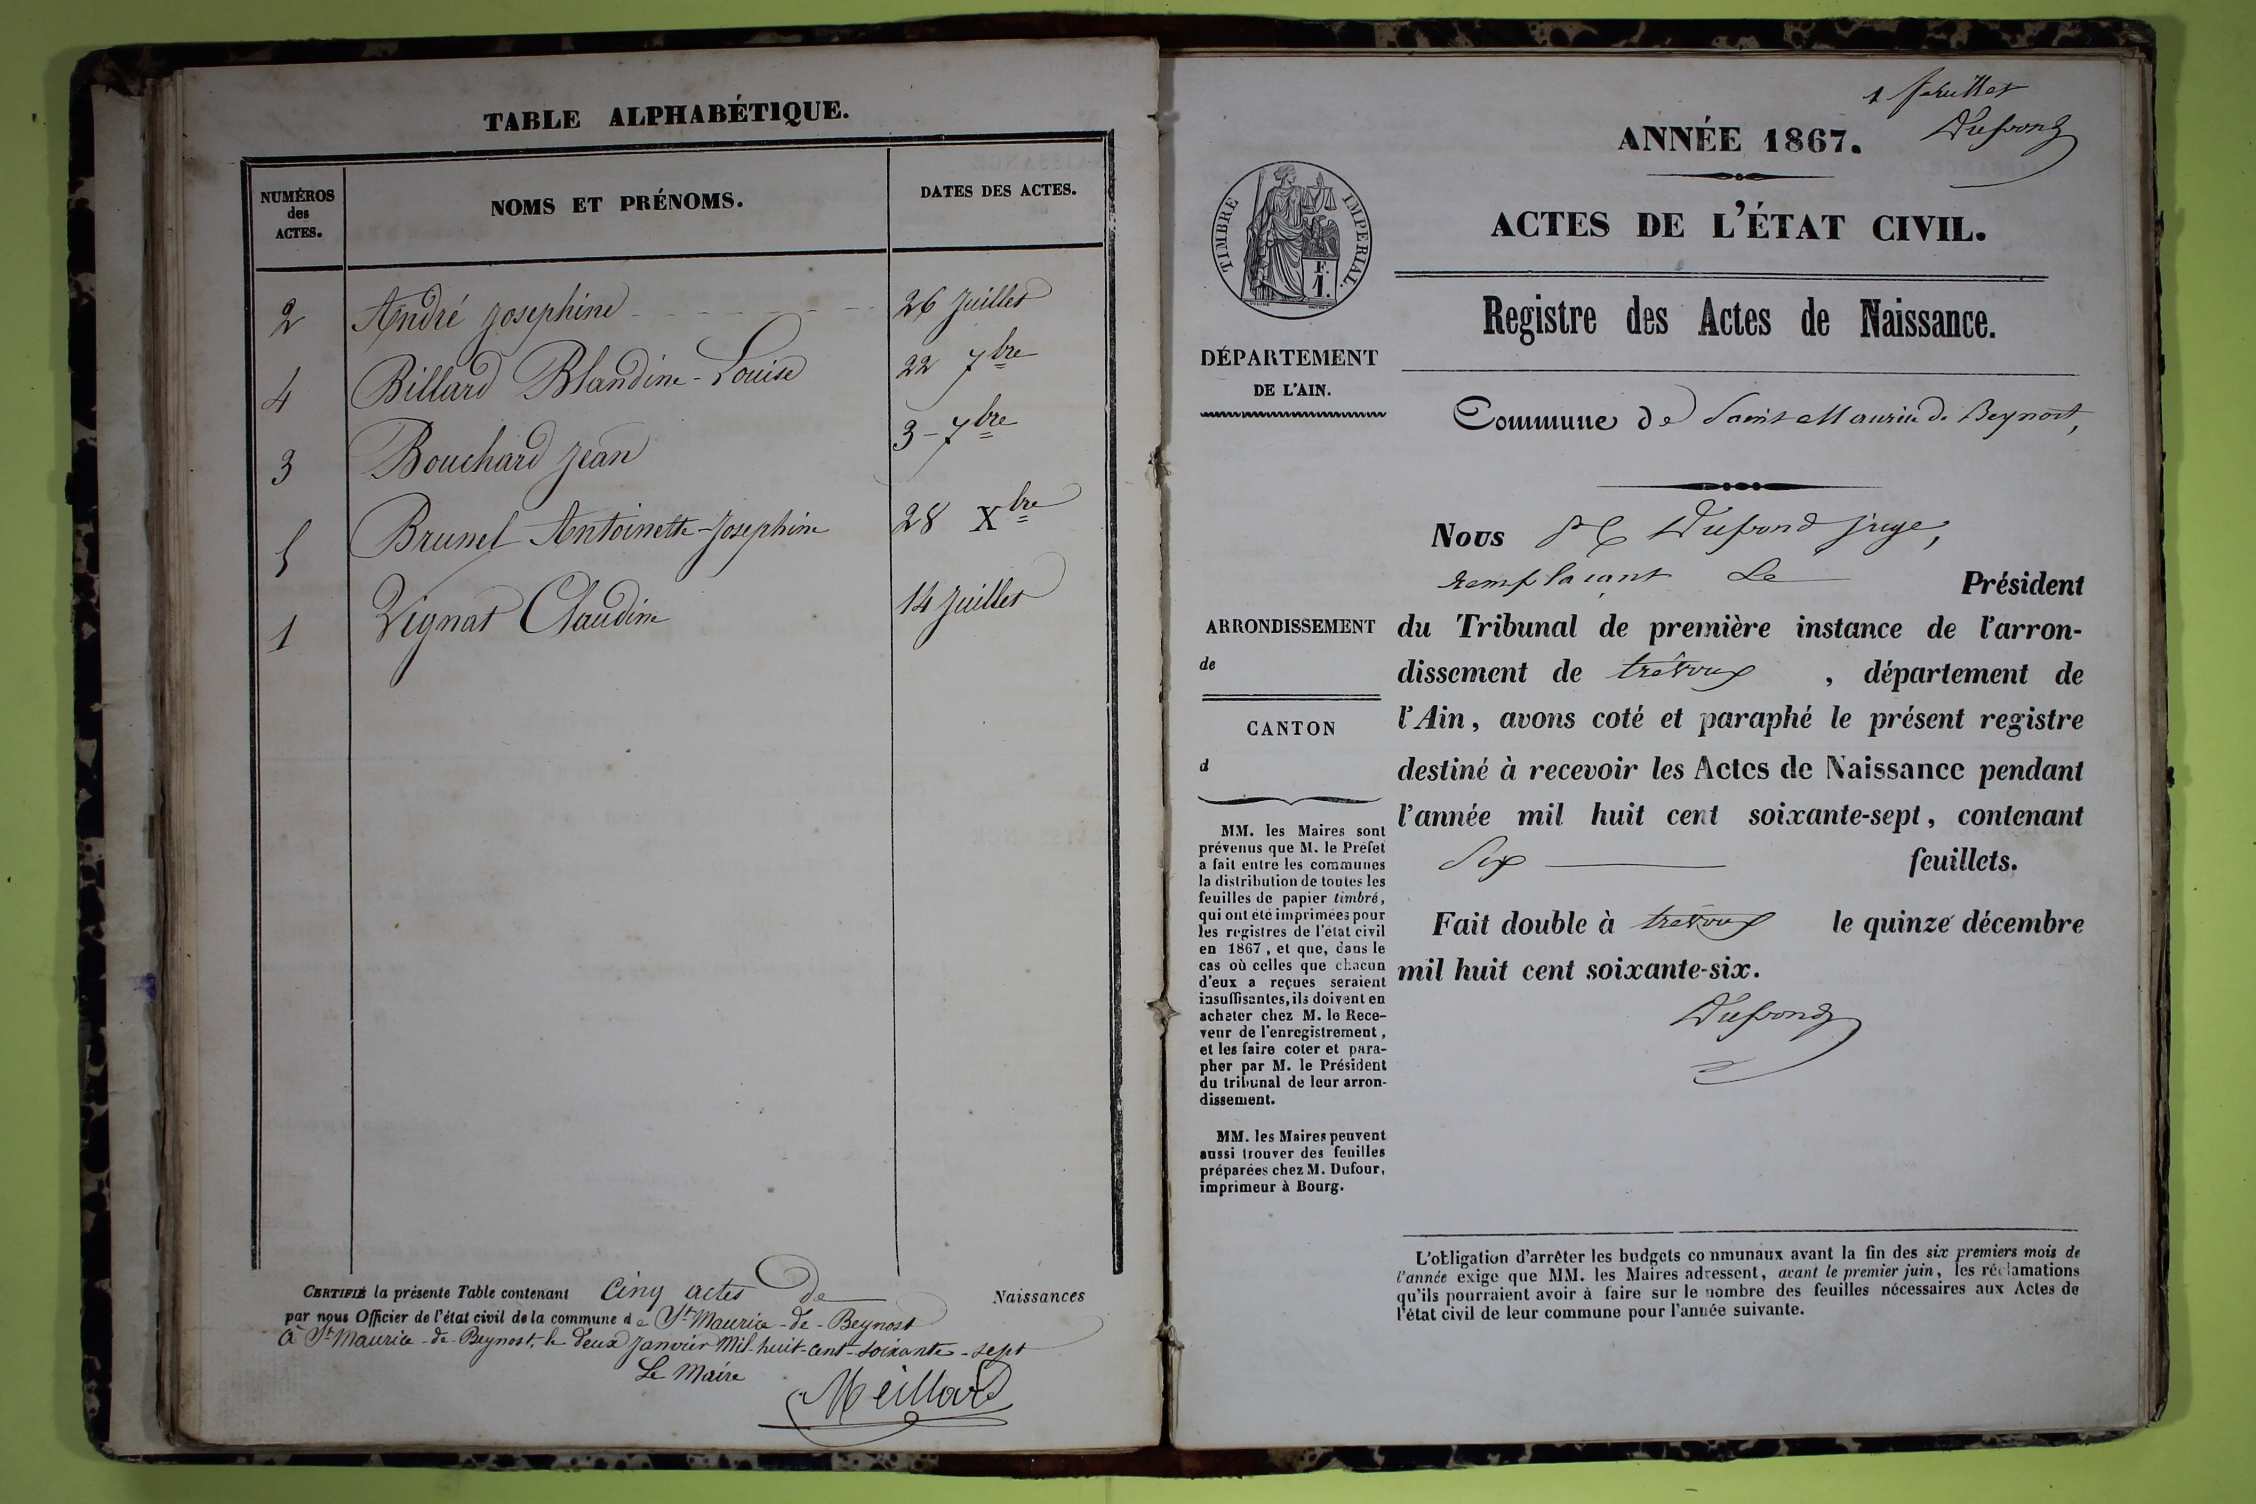 TABLE ALPHABÉTIQUE.
NUMÉROS
des
ACTES.
NOMS ET PRÉNOMS.
DATES DES ACTES.
2 André Josephine 26 Juillet
4 Billard Blandine-Louise 22 7bre
3 Bouchard Jean 3-7bre
5 Brunel Antoinette-Josephine 28 Xbre
1 Vignat Claudine 14 Juillet
CERTIFIÉ la présente Table contenant Cinq actes de Naissances
par nous Officier de l'état civil de la commune de St Maurice-de-Beynost
à St Maurice-de-Beynost, le deux Janvier Mil-huit-cent-soixante-sept
Le Maire
Meillard
1 feuillet
Dufond
ANNÉE 1867.
ACTES DE L'ÉTAT CIVIL.
TIMBRE IMPERIAL.
F.
1.
Registre des Actes de Naissance.
DÉPARTEMENT
DE L'AIN.
Commune de Saint Maurice de Beynost,
Nous Dufond juge,
remplaçant Le Président
du Tribunal de première instance de l'arron-
dissement de trévoux, département de
l'Ain, avons coté et paraphé le présent registre
destiné à recevoir les Actes de Naissance pendant
l'année mil huit cent soixante-sept, contenant
Six feuillets.
Fait double à trévoux le quinze décembre
mil huit cent soixante-six.
Dufond
ARRONDISSEMENT
de
CANTON
d
MM. les Maires sont
prévenus que M. le Préfet
a fait entre les communes
la distribution de toutes les
feuilles de papier timbré,
qui ont été imprimées pour
les registres de l'état civil
en 1867, et que, dans le
cas où celles que chacun
d'eux a reçues seraient
insuffisantes, ils doivent en
acheter chez M. le Rece-
veur de l'enregistrement,
et les faire coter et para-
pher par M. le Président
du tribunal de leur arron-
dissement.
MM. les Maires peuvent
aussi trouver des feuilles
préparées chez M. Dufour,
imprimeur à Bourg.
L'obligation d'arrêter les budgets communaux avant la fin des six premiers mois de
l'année exige que MM. les Maires adressent, avant le premier juin, les réclamations
qu'ils pourraient avoir à faire sur le nombre des feuilles nécessaires aux Actes de
l'état civil de leur commune pour l'année suivante.